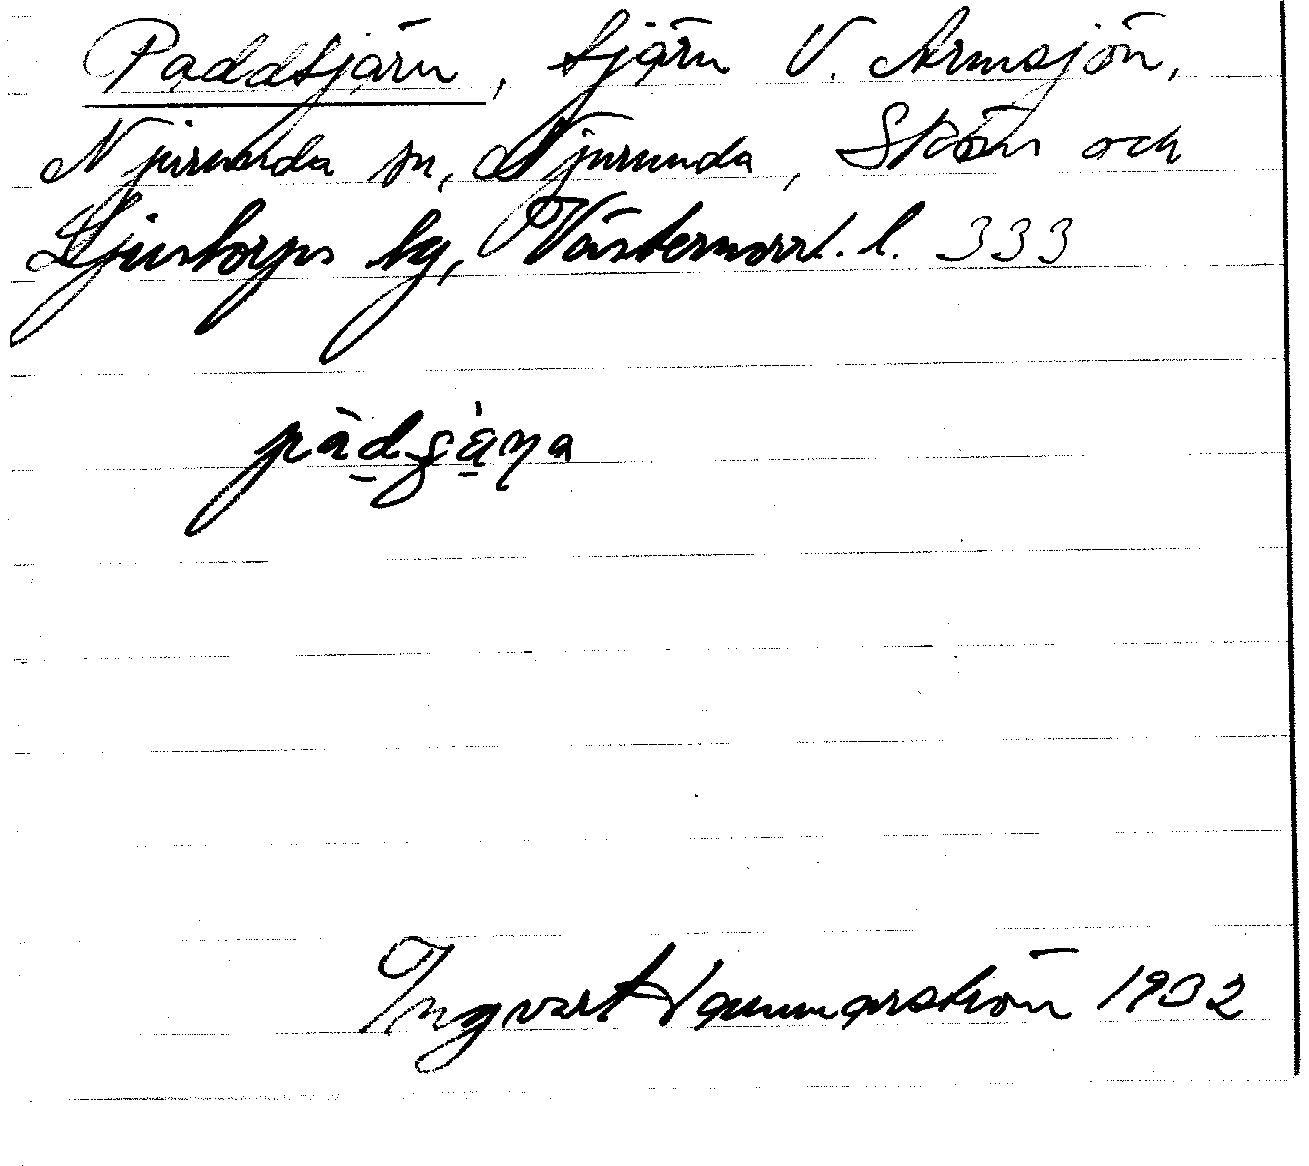 Paddtjärn, tjärn V. Armsjön,
Njurunda sn, Njurunda, Sköns och
Ljustorps tg, Västernorrl. l. 333
Ingvart Hammarström 1932